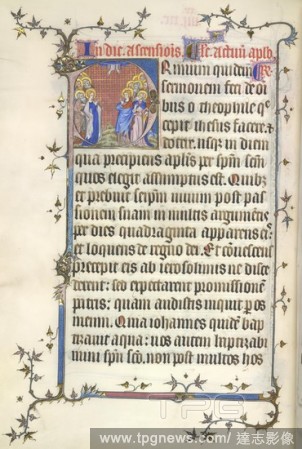 In die ascensiõis. Lc̃. actuũ aplõ.
Rimum quidem
sermonem feci de õi
bus o theophile q̃
cepit ihesus facere ⁊
docere. usq̃ in diem
qua precipiens aplĩs per spm̃ scm̃
quos elegit assumptus est. Quibz
et prebuit seipm̃ uiuum post pas
sionem suam in multis argumẽtis
per dies quadraginta apparens eis:
et loquens de regno dei. Et cõuescens
precepit eis ab ierosolimis ne disce
derent: sed expectarent promissionẽ
patris: quam audistis inquit per os
meum. Quia iohannes quidẽ bap
tizauit aqua: uos autem baptizabi
mini spũ scõ, non post multos hos
TPG
www.tpgnews.com/ 達志影像